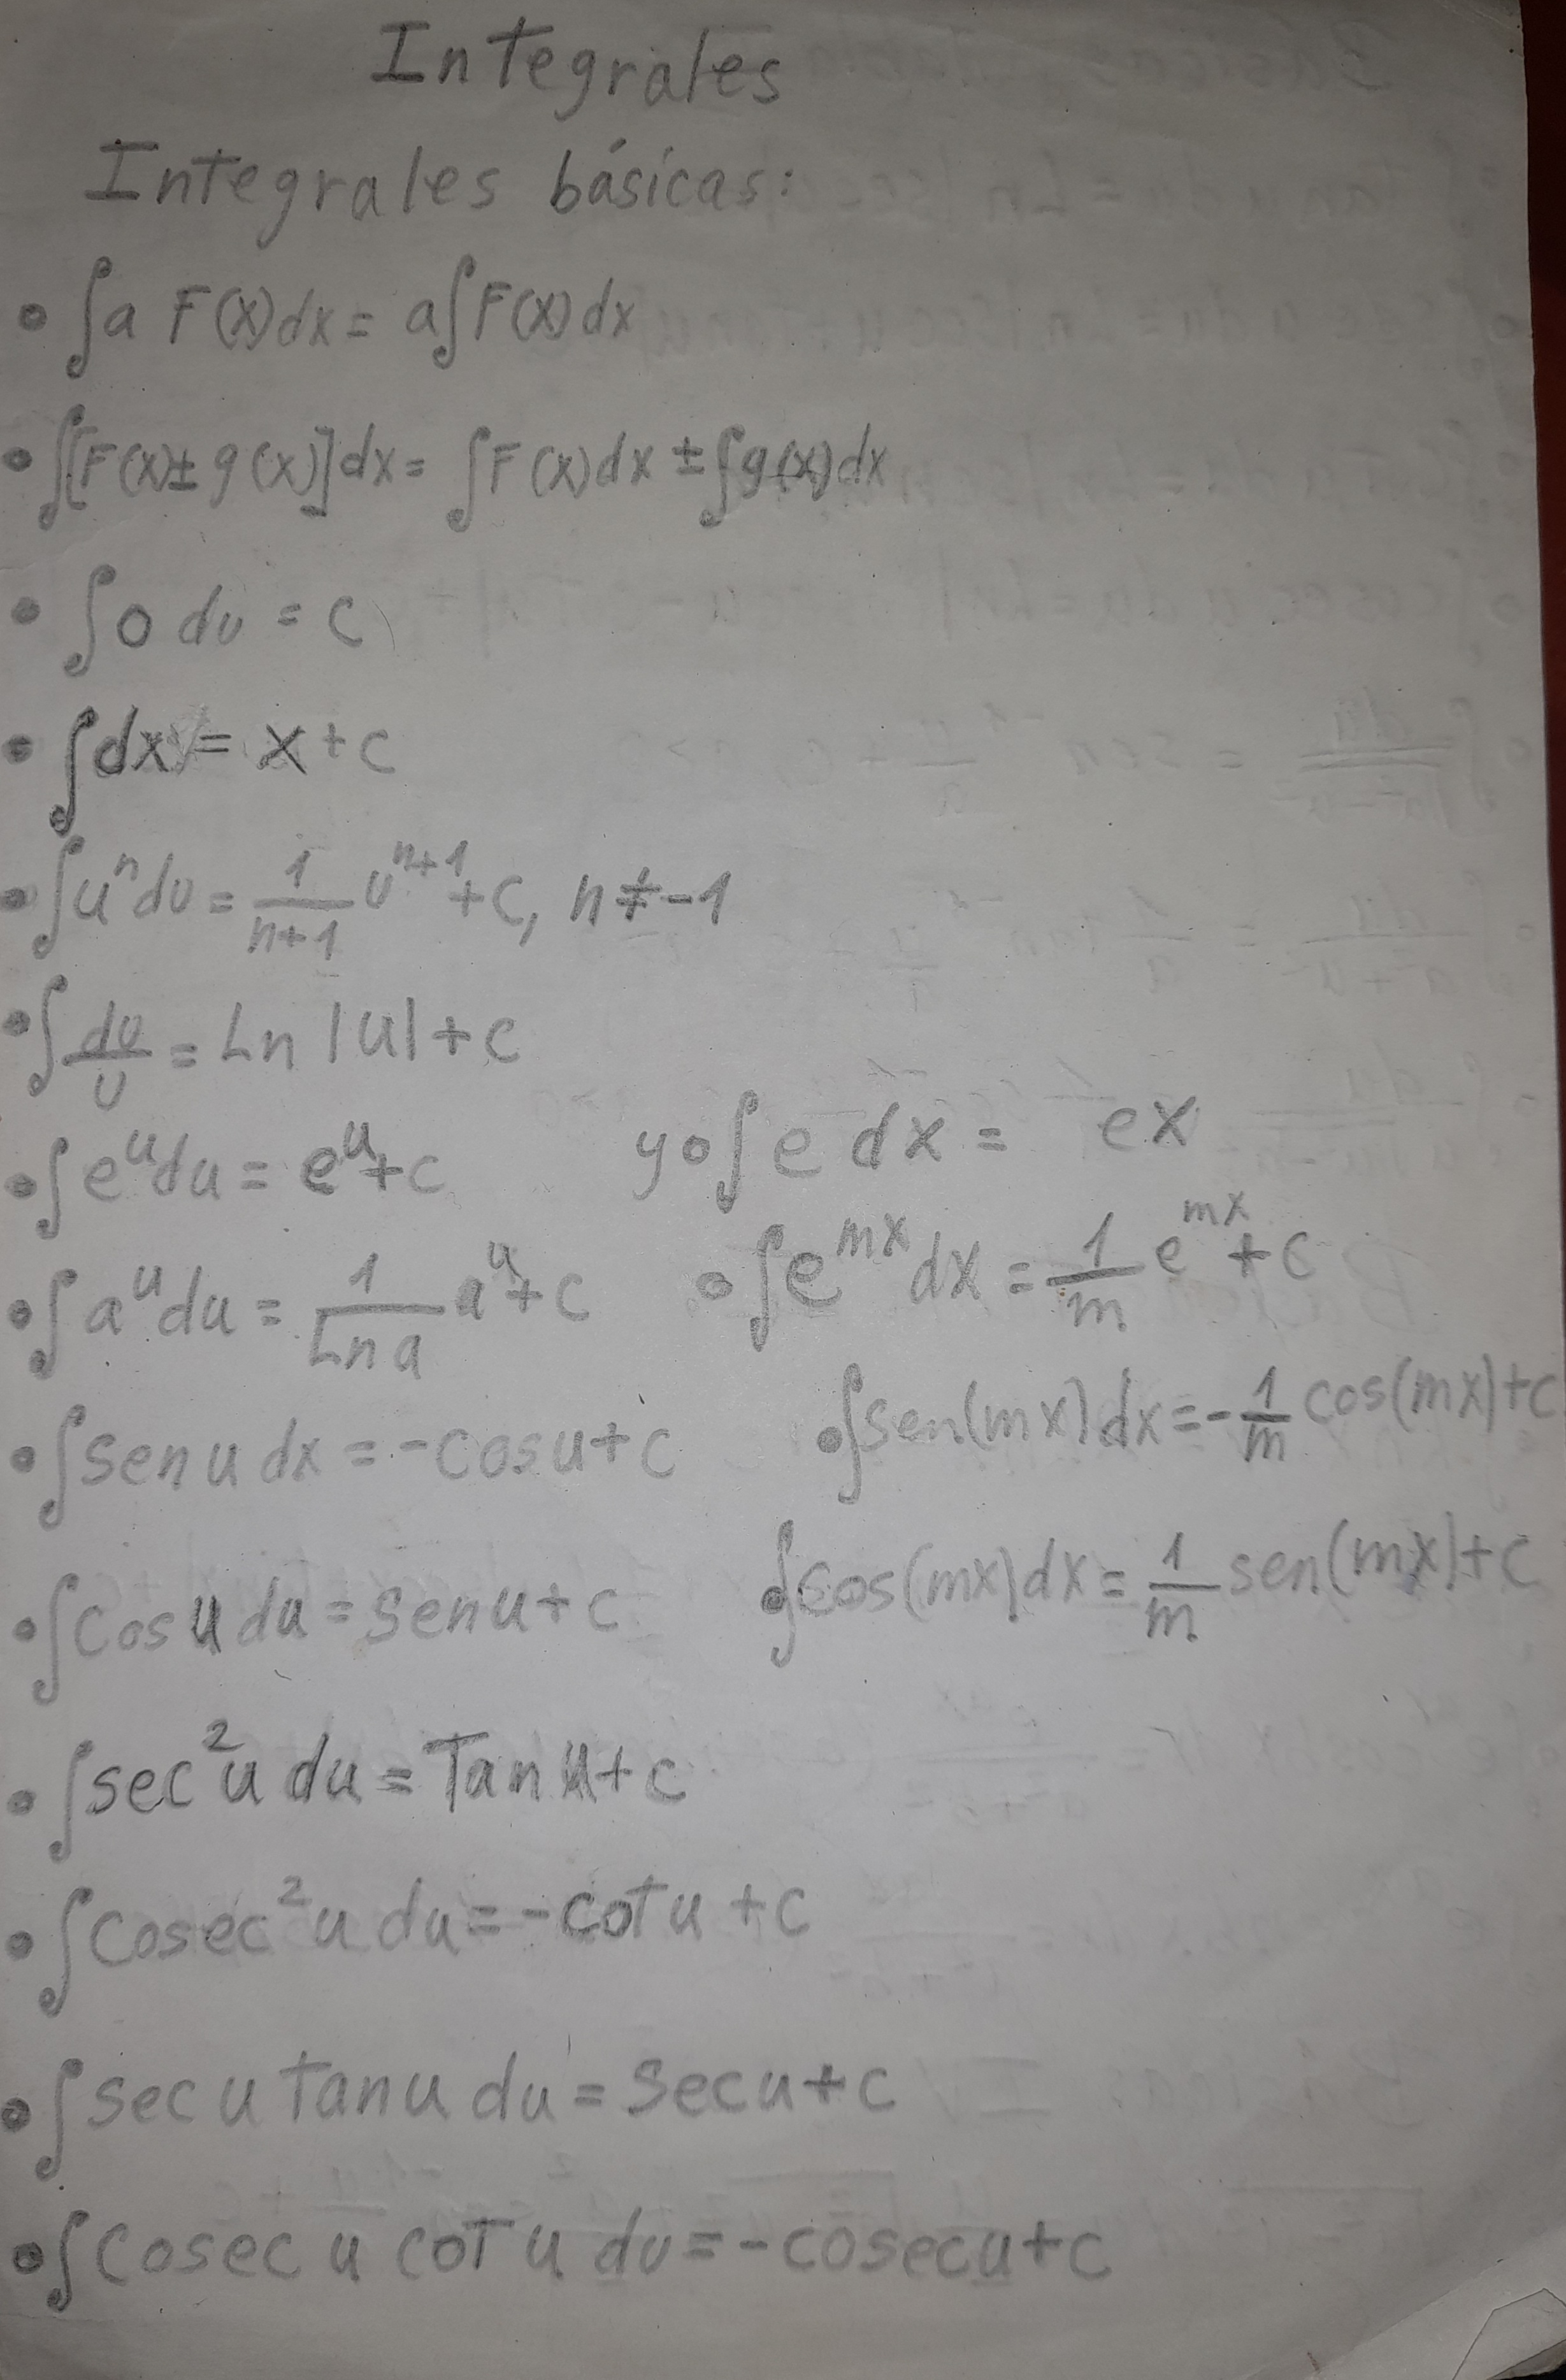 Integrales
Integrales básicas:
∫a F(x)dx = a∫F(x)dx
∫[F(x)±g(x)]dx = ∫F(x)dx ± ∫g(x)dx
∫0 du = c
∫dx = x+c
∫uⁿdu = 1/(n+1) uⁿ⁺¹+c, n≠-1
∫du/u = Ln |u|+c
∫eᵘdu = eᵘ+c y ∫e dx = ex
∫aᵘdu = 1/(Ln a) aᵘ+c ∫eᵐˣdx = 1/m eᵐˣ+c
∫sen u dx = -cosu+c ∫sen(mx)dx = -1/m cos(mx)+c
∫cos u du = senu+c ∫cos(mx)dx = 1/m sen(mx)+c
∫sec²u du = Tan u+c
∫cosec²u du = -coTu+c
∫sec u Tanu du = secu+c
∫cosec u coT u du = -cosecu+c